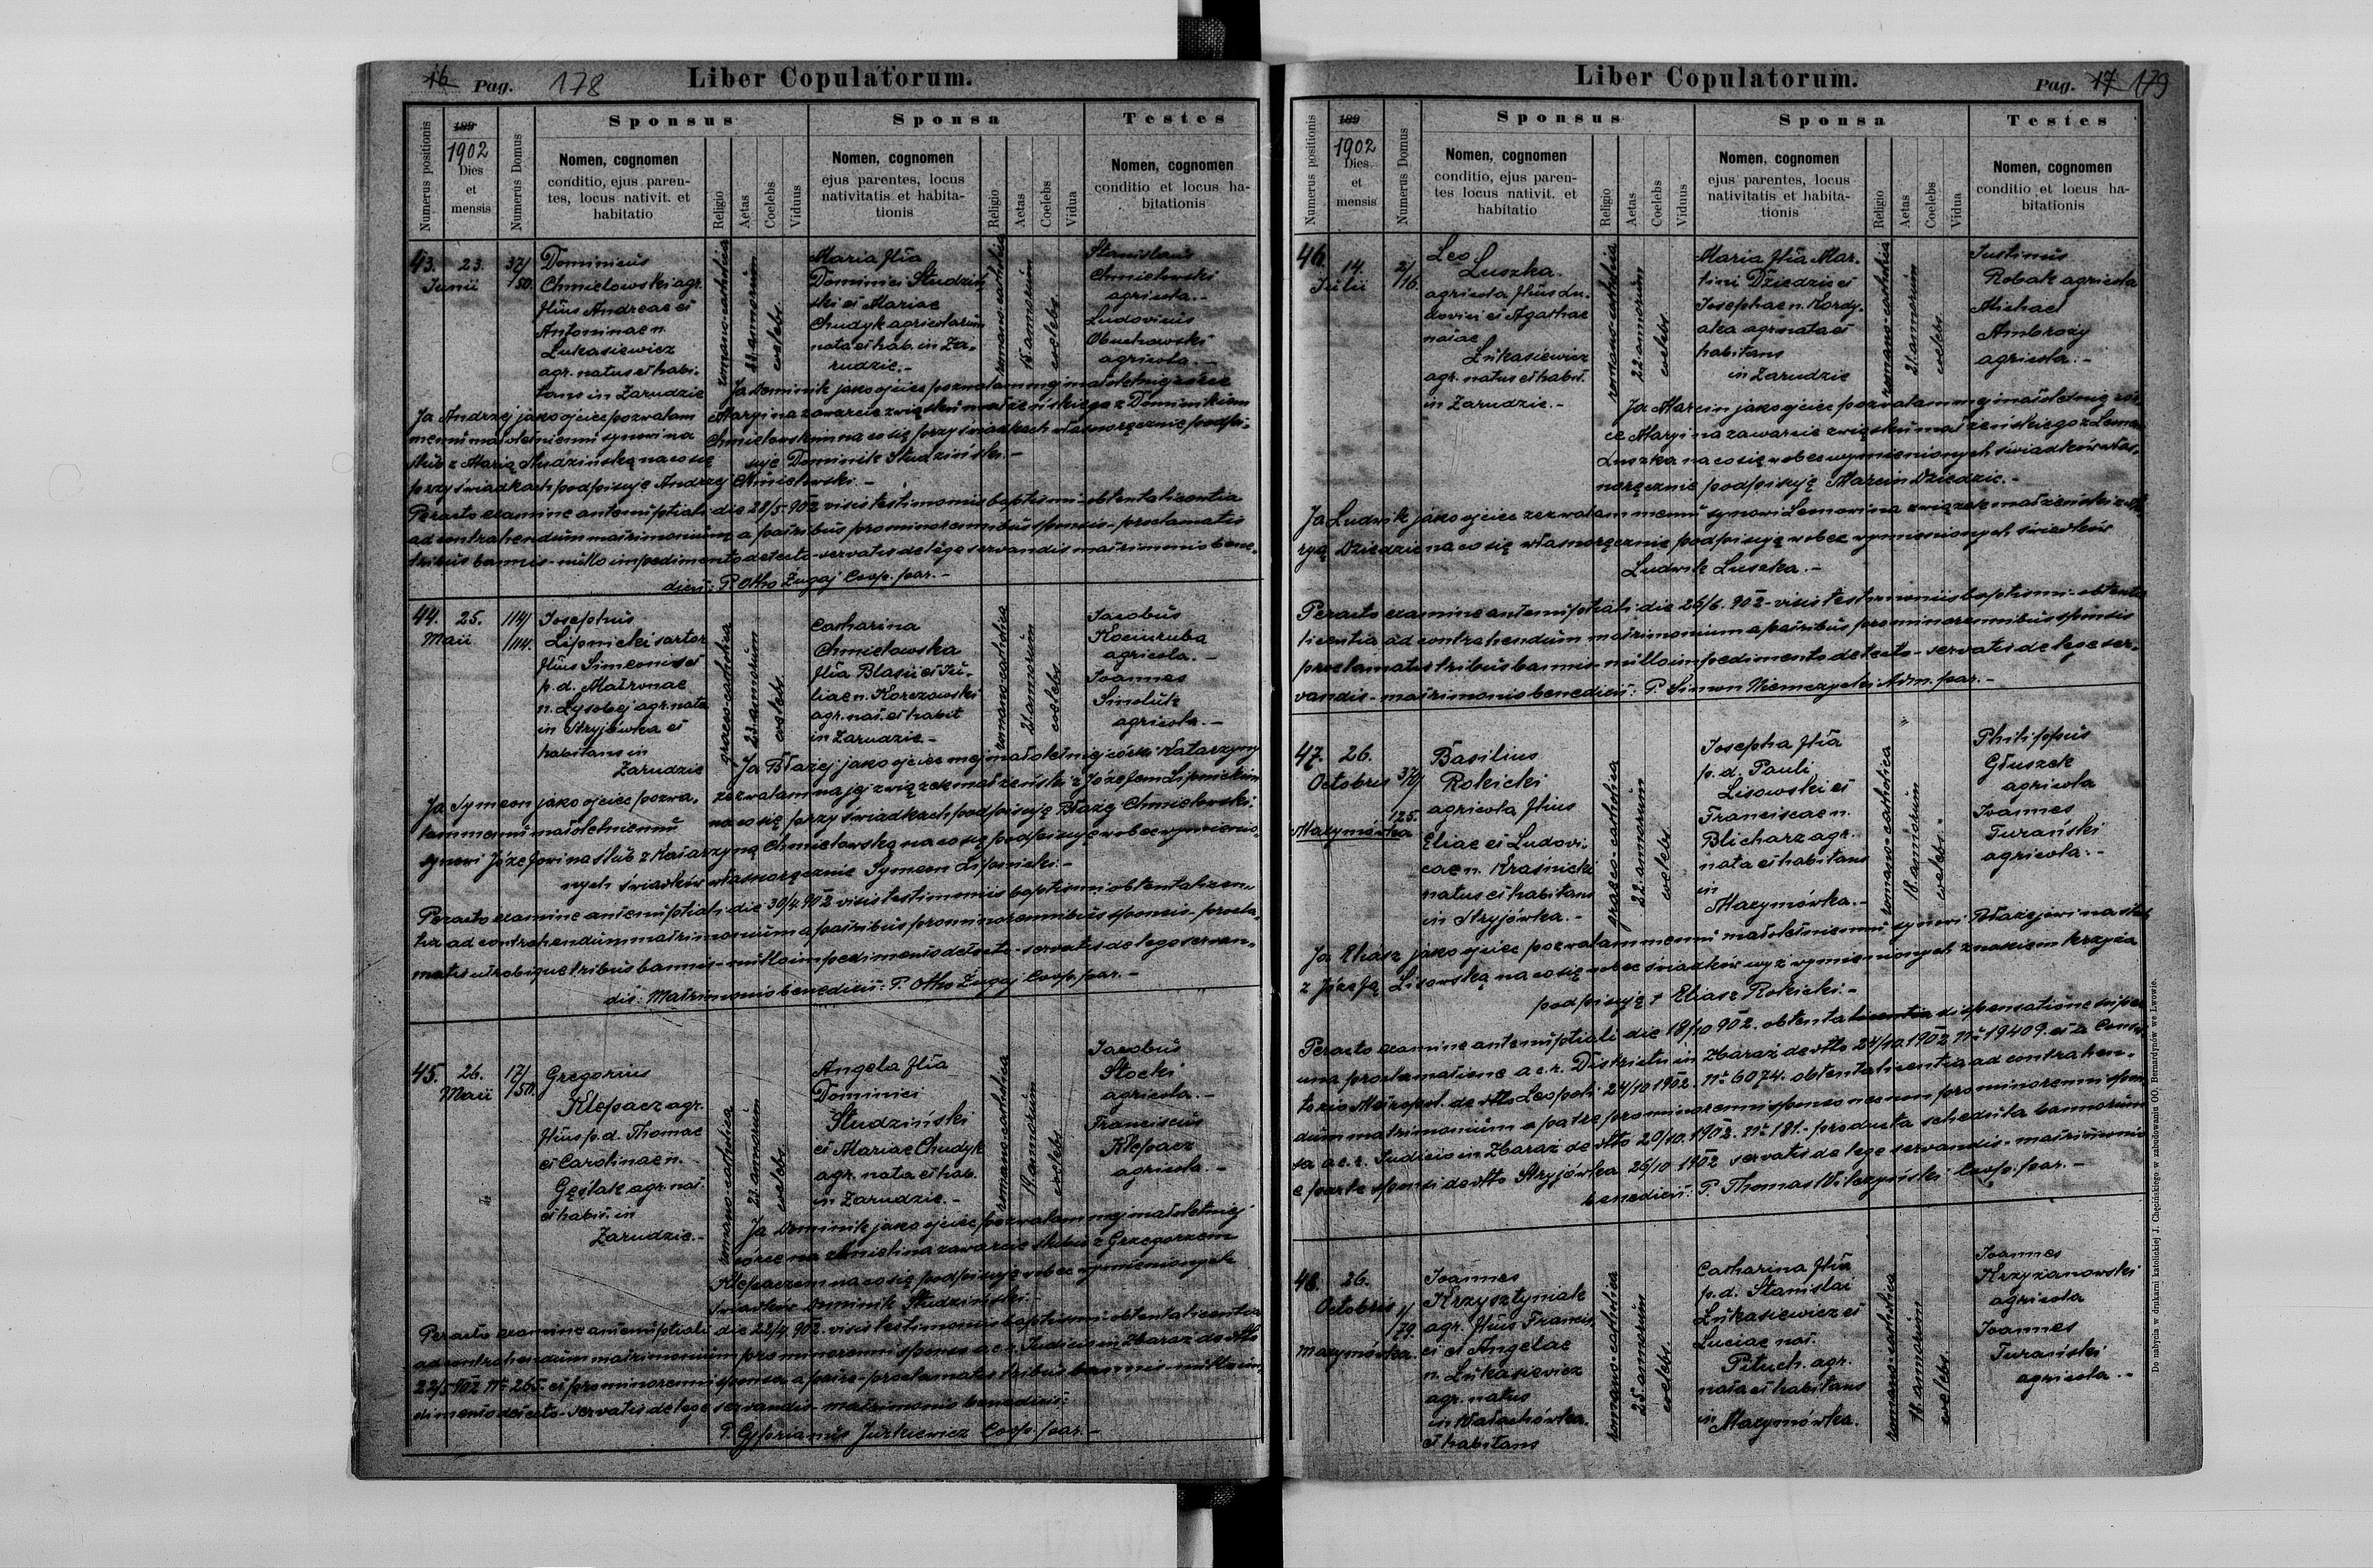 16 Pag. 178 Liber Copulatorum.
Numerus positionis
189
1902
Dies
et
mensis
Numerus Domus
Sponsus
Nomen, cognomen
conditio, ejus paren-
tes, locus nativit. et
habitatio
Religio
Aetas
Coelebs
Viduus
Sponsa
Nomen, cognomen
ejus parentes, locus
nativitatis et habita-
tionis
Religio
Aetas
Coelebs
Vidua
Testes
Nomen, cognomen
conditio et locus ha-
bitationis
43. 23.
Junii
37/
/50.
Dominicus
Chmielowski agr.
filius Andreae et
Antoninae n.
Lukasiewicz
agr. natus et habi-
tans in Zarudzie
romano-catholica
annorum
coelebs.
Maria filia
Dominici Studziń
ski et Mariae
Chudyk agricolarum
nata et hab. in Za-
rudzie.-
romano-catholica
annorum
coelebs
Stanislaus
Chmielowski
agricola.-
Ludovicus
Obuchowski
agricola.-
Ja Dominik jako ojciec pozwalam mej małoletniej córce
Maryi na zawarcie związku małżeńskiego z Dominikiem
Chmielowskim na co się przy świadkach własnoręcznie podpi-
suję Dominik Studziński.-
Ja Andrzej jako ojciec pozwalam
memu małoletniemu synowi na
ślub z Marią Studzińską na co się
przy świadkach podpisuję Andrzej Chmielowski.-
Peracto examine antenuptiali die 28/5 902 visis testimoniis baptismi-obtenta licentia
ad contrahendum matrimonium a patribus pro minorennibus sponsis-proclamatis
tribus bannis-nullo impedimento detecto-servatis de lege servandis matrimonio bene-
dixit: P. Otho Żugaj Coop. par.-
44. 25.
Maii
114/
/114.
Josephus
Lipnicki sartor
filius Simeonis et
p. d. Matronae
n. Łysobej agr. natus
in Stryjówka et
habitans in
Zarudzie
graeco-catholica
23. annorum
coelebs
Catharina
Chmielowska
filia Blasii et Ju-
liae n. Korczowski
agr. nat. et habit
in Zarudzie-
romano-catholica
21. annorum
coelebs
Jacobus
Kociuruba
agricola.-
Joannes
Smoluk
agricola.-
Ja Błażej jako ojciec mej małoletniej córki Katarzyny
zezwalam na jej związek małżeński z Józefem Lipnickim
na co się przy świadkach podpisuję Błażej Chmielowski.
Ja Symeon jako ojciec pozwa-
lam memu małoletniemu
synowi Józefowi na ślub z Katarzyną Chmielowską na co się podpisuję wobec wymienio-
nych świadków własnoręcznie Symeon Lipnicki.-
Peracto examine antenuptiali die 30/4.902 visis testimoniis baptismi obtenta licen-
tia ad contrahendum matrimonium a patribus pro minorennibus sponsis-procla-
matis utrobique tribus bannis-nullo impedimento detecto-servatis de lege servan-
dis: Matrimonio benedixit: P. Otho Żugaj Coop. par.-
45. 26.
Maii
17/
/50.
Gregorius
Klepacz agr.
filius p. d. Thomae
et Carolinae n.
Gęślak agr. nat.
et habit. in
Zarudzie.-
romano-catholica
23. annorum
coelebs
Angela filia
Dominici
Studziński
et Mariae Chudyk
agr. nata et hab.
in Zarudzie.-
romano-catholica
19. annorum
coelebs
Jacobus
Stocki
agricola.-
Franciscus
Klepacz
agricola.-
Ja Dominik jako ojciec pozwalam mej małoletniej
córce na zawarcie ślubu z Grzegorzem
Klepaczem na co się podpisuję wobec wymienionych
świadków Dominik Studziński.-
Peracto examine antenuptiali die 22/4 902. visis testimoniis baptismi obtenta licentia
ad contrahendum matrimonium pro minorenni sponso a c. r. Judicio in Zbaraż de dtto
22/5 902 No 265. et pro minorenni sponsa a patre-proclamatis tribus bannis-nullo im
dimento detecto-servatis de lege servandis-matrimonio benedixit:
P. Cyprianus Jurkiewicz Coop. par.-
Liber Copulatorum. Pag. 17 179
Numerus positionis
189
1902
Dies
et
mensis
Numerus Domus
Sponsus
Nomen, cognomen
conditio, ejus paren-
tes locus nativit. et
habitatio
Religio
Aetas
Coelebs
Viduus
Sponsa
Nomen, cognomen
ejus parentes, locus
nativitatis et habita-
tionis
Religio
Aetas
Coelebs
Vidua
Testes
Nomen, cognomen
conditio et locus ha-
bitationis
46 14.
Julii
2/
/16.
Leo
Luszka.
agricola filius Lu-
dovici et Agathae
natae
Lukasiewicz
agr. natus et habit.
in Zarudzie.-
romano-catholica
22. annorum
coelebs
Maria filia Mar-
tini Dziedzic et
Josephae n. Kordy-
alka agr nata et
habitans
in Zarudzie
romano-catholica
21. annorum
coelebs
Justinus
Robak agricola
Michael
Ambroży
agricola.-
Ja Marcin jako ojciec pozwalam mej małoletniej cór
ce Maryi na zawarcie związku małżeńskiego z Leonem
Luszka na co się wobec wymienionych świadków włas-
noręcznie podpisuję Marcin Dziedzic.-
Ja Ludwik jako ojciec zezwalam memu synowi Leonowi na związek małżeński z Ma
ryą Dziedzic na co się własnoręcznie podpisuję wobec wymienionych świadków
Ludwik Luszka.-
Peracto examine antenuptiali die 26/6. 902-visis testimoniis baptismi-obtenta
licentia ad contrahendum matrimonium a patribus pro minorennibus sponsis
proclamatis tribus bannis-nullo impedimento detecto-servatis de lege ser-
vandis-matrimonio benedixit: P. Simon Niemczycki Adm. par.-
47. 26.
Octobris
Maxymówka
370/
125.
Basilius
Rokicki
agricola filius
Eliae et Ludovi-
cae n. Kraśnicki
natus et habitans
in Stryjówka.-
graeco-catholica
22. annorum
coelebs
Josepha filia
p. d. Pauli
Lisowski et
Franciscae n.
Blicharz agr.
nata et habitans
in
Maxymówka.-
romano-catholica
18. annorum
coelebs.
Philippus
Głuszek
agricola
Joannes
Turański
agricola.-
Ja Eliasz jako ojciec pozwalam memu małoletniemu synowi Błażejowi na ślub
z Józefą Lisowską na co się wobec świadków wyż wymienionych znakiem krzyża
podpisuję + Eliasz Rokicki.-
Peracto examine antenuptiali die 18/10 902. obtenta licentia dispensatione super
una proclamatione a c. r. Districtu in Zbaraż de dtto 24/10.1902 No 19409. et a Consis
torio Metropol. de dtto Leopoli 24/10 1902. No 6074. obtenta licentia ad contrahen-
dum matrimonium a patre pro minorenni sponso nec non pro minorenni spon
sa a c. r. Judicio in Zbaraż de dtto 20/10.1902. No 181.-producta schedula bannorum
e parte sponsi de dtto Stryjówka 26/10 1902 servatis de lege servandis-matrimonio
benedixit: P. Thomas Wilczyński Coop. par.-
48 26.
Octobris
Maxymówka.
1/
/79.
Joannes
Krzysztyniak
agr. filius Francis
ci et Angelae
n. Lukasiewicz
agr. natus
in Klatachówka.
et habitans
romano-catholica
25. annorum
coelebs.
Catharina filia
p. d. Stanislai
Lukasiewicz et
Luciae nat.
Pituch. agr.
nata et habitans
in Maxymówka.
romano-catholica
18. annorum
coelebs.
Joannes
Krzyżanowski
agricola
Joannes
Turański
agricola.-
Do nabycia w drukarni katolickiej J. Chęcińskiego w zabudowaniu OO. Bernardynów we Lwowie.